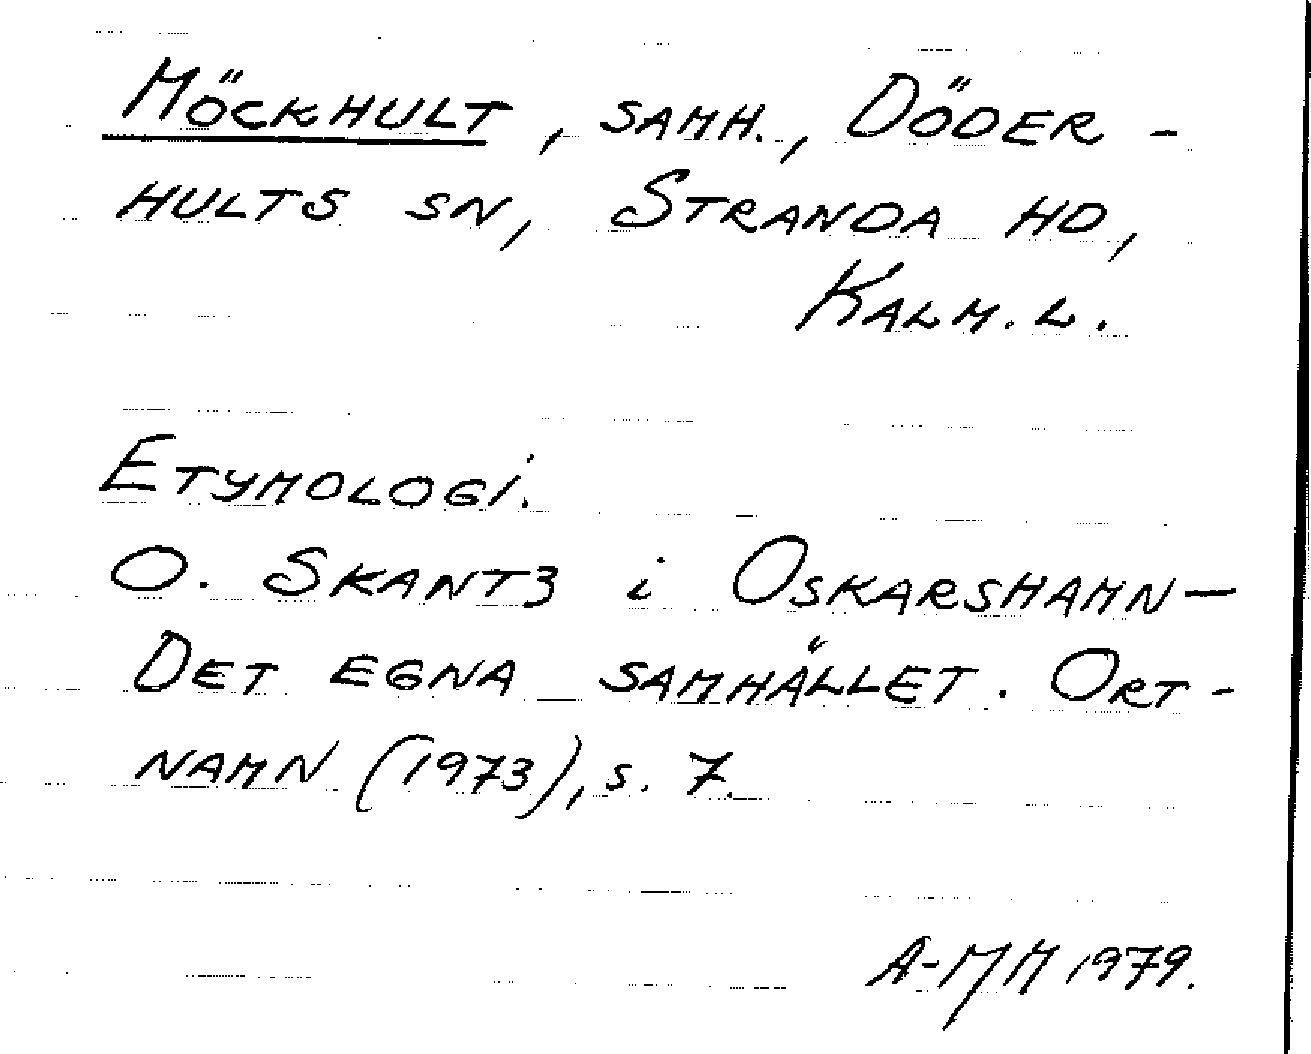 MÖCKHULT, SAMH., DÖDER-
HULTS SN, STRANDA HD,
KALM. L.
ETYMOLOGI.
O. SKANTZ i OSKARSHAMN-
DET EGNA SAMHÄLLET. ORT-
NAMN (1973), s. 7.
A-MM 1979.